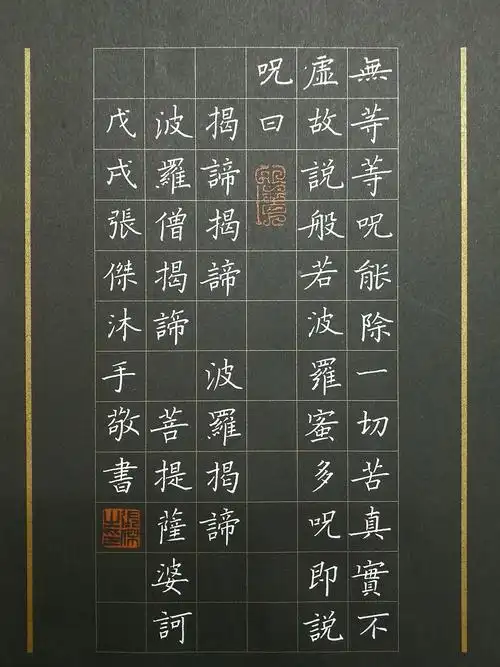 無等等呪能除一切苦真實不
虛故說般若波羅蜜多呪即說
呪曰
揭諦揭諦 波羅揭諦
波羅僧揭諦 菩提薩婆訶
戊戌張傑沐手敬書